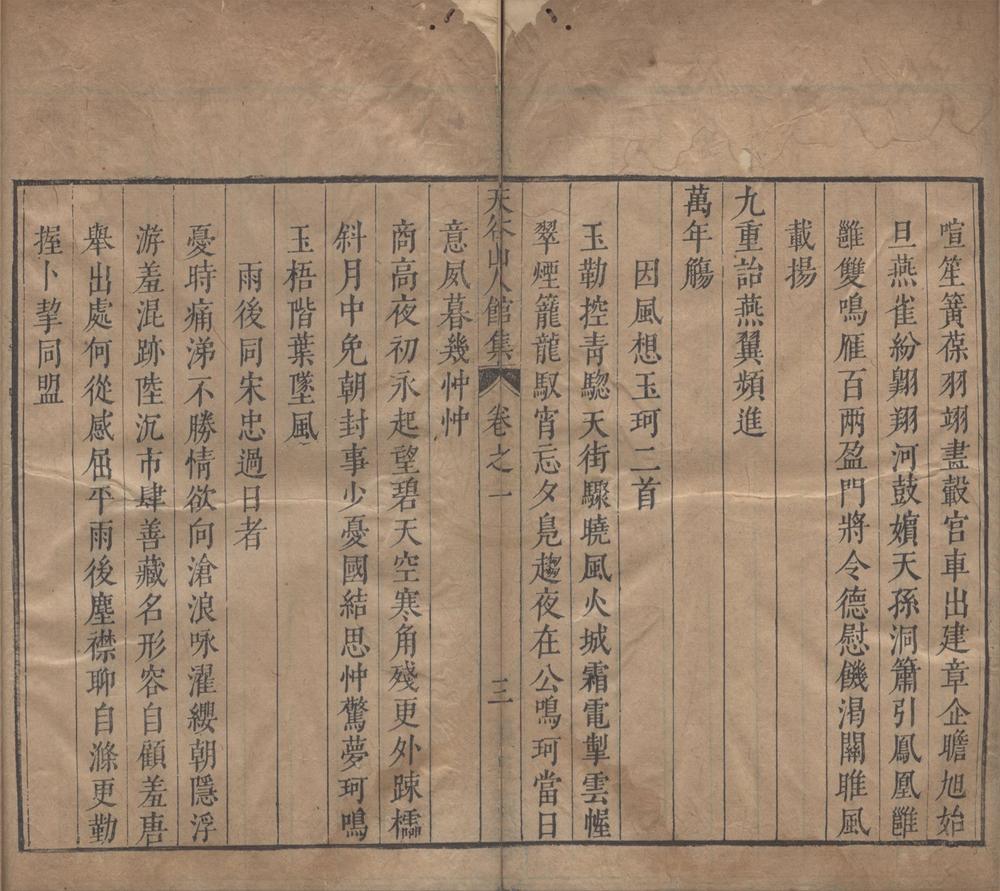 喧笙簧葆羽翊畫轂宮車出建章企瞻旭始
旦燕雀紛翺翔河鼓嬪天孫洞簫引鳳凰雝
雝雙鳴雁百兩盈門將令德慰饑渴關雎風
載揚
九重詒燕翼頻進
萬年觴
因風想玉珂二首
玉勒控青驄天街驟曉風火城霜電掣雲幄
翠煙籠龍馭宵忘夕鳧趨夜在公鳴珂當日
意夙暮幾忡忡
天谷山人館集 卷之一 三
商高夜初永起望碧天空寒角殘更外踈櫺
斜月中免朝封事少憂國結思忡驚夢珂鳴
玉梧階葉墜風
雨後同宋忠過日者
憂時痛涕不勝情欲向滄浪咏濯纓朝隱浮
游羞混跡陸沉市肆善藏名形容自顧羞唐
舉出處何從感屈平雨後塵襟聊自滌更勤
握卜挈同盟